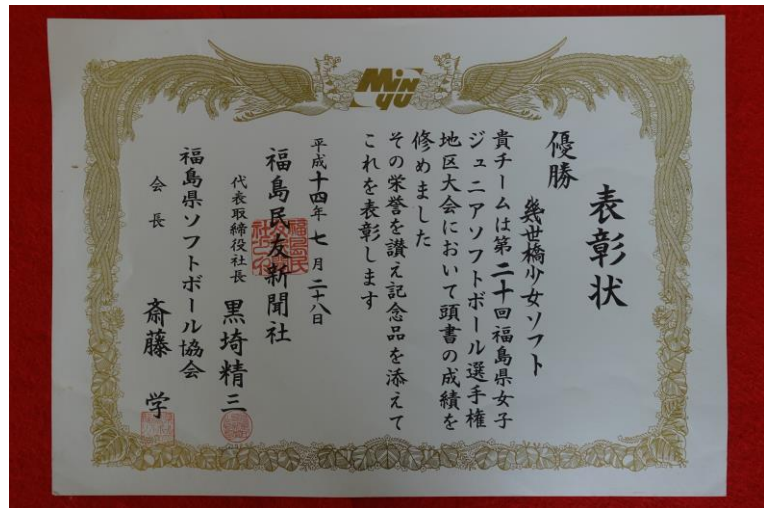 MiNYU
表彰状
優勝
幾世橋少女ソフト
貴チームは第二十回福島県女子
ジュニアソフトボール選手権
地区大会において頭書の成績を
修めました
その栄誉を讃え記念品を添えて
これを表彰します
平成十四年七月二十八日
福島民友新聞社
代表取締役社長 黒埼精三
福島県ソフトボール協会
会長 斎藤学